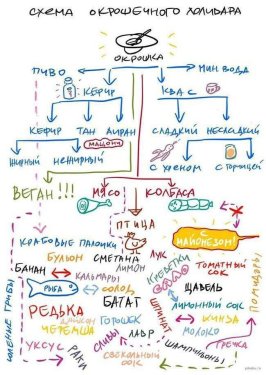 СХЕМА ОКРОШЕЧНОГО ХОЛИВАРА
ОКРОШКА
ПИВО
МИН. ВОДА
КЕФИР
КВАС
КЕФИР ТАН АЙРАН
СЛАДКИЙ НЕСЛАДКИЙ
МАЦОНИ
ЖИРНЫЙ НЕЖИРНЫЙ
С ХРЕНОМ
С ГОРЧИЦЕЙ
ВЕГАН!!!
МЯСО
КОЛБАСА
ПТИЦА
С МАЙОНЕЗОМ!
КРАБОВЫЕ ПАЛОЧКИ
БУЛЬОН
СМЕТАНА
ЛУК
ТОМАТНЫЙ СОК
БАНАН
КАЛЬМАРЫ
ЛИМОН
КРЕВЕТКИ
ПОМИДОРЫ
СОЛЕНЫЕ ГРИБЫ
РЫБА
СОЛОД
ЩАВЕЛЬ
БАТАТ
ШПИНАТ
ЛИМОННЫЙ СОК
РЕДЬКА
ДАЙКОН
ГОРОШЕК
КИНЗА
ЧЕРЕМША
МОЛОКО
УКСУС
РАКИ
СЛИВЫ
ЛАВР
ГРЕЧКА
СВЕКОЛЬНЫЙ СОК
ШАМПИНЬОНЫ